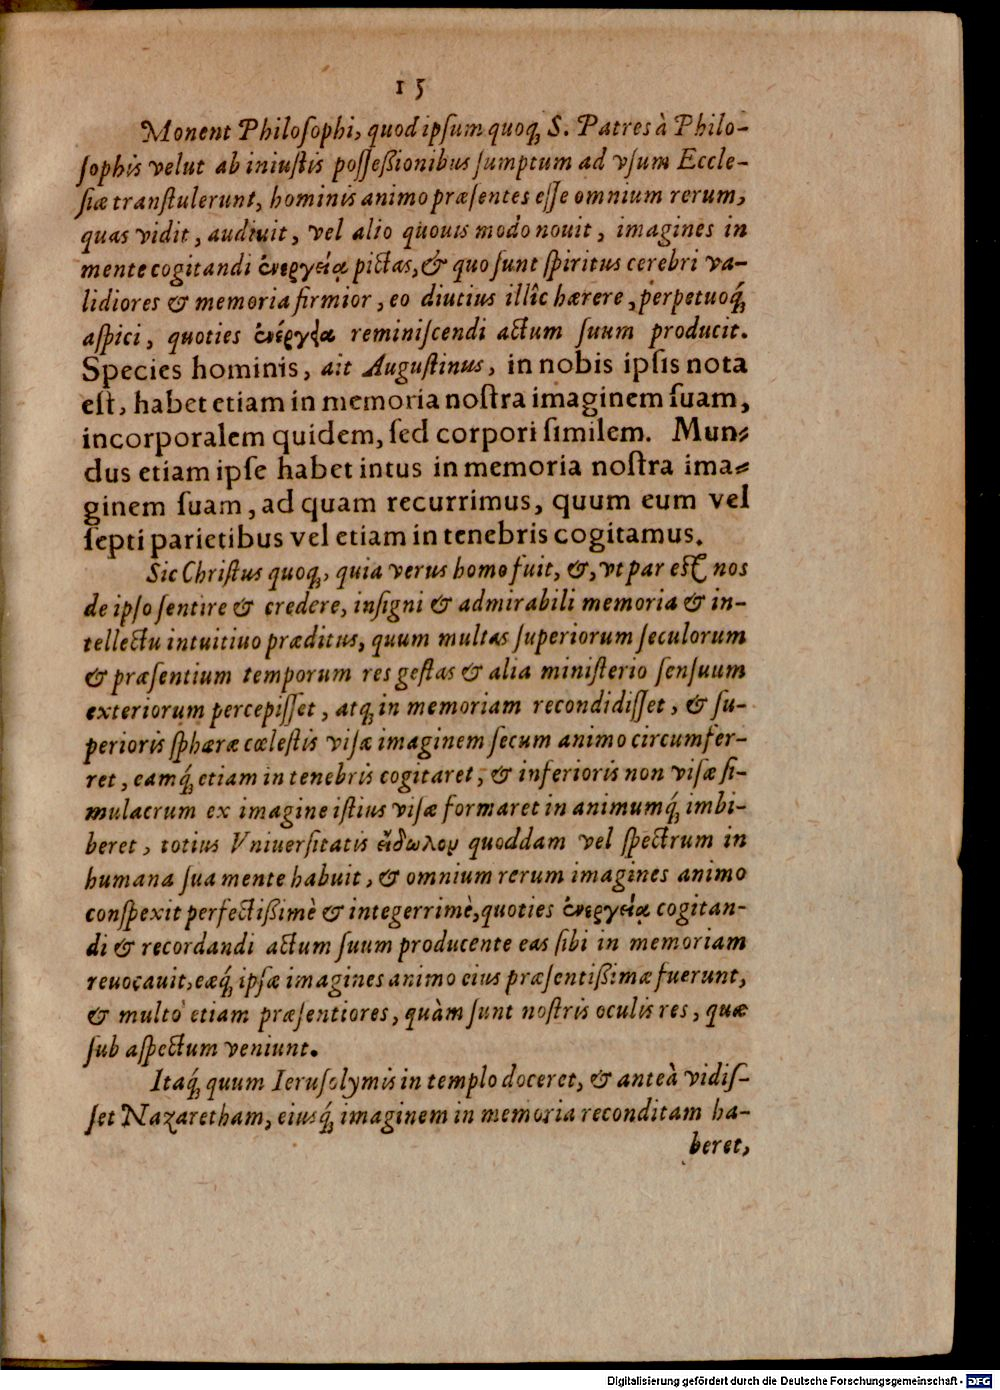 15
Monent Philoſophi, quod ipſum quoq; S. Patres à Philo-
ſophis velut ab iniuſtis poſſeßionibus ſumptum ad vſum Eccle-
ſiæ tranſtulerunt, hominis animo præſentes eſſe omnium rerum,
quas vidit, audiuit, vel alio quouis modo nouit, imagines in
mente cogitandi ἐνεργείᾳ pictas, & quo ſunt ſpiritus cerebri va-
lidiores & memoria firmior, eo diutius illîc hærere, perpetuoq́;
aſpici, quoties ἐνέργεια reminiſcendi actum ſuum producit.
Species hominis, ait Auguſtinus, in nobis ipſis nota
eſt, habet etiam in memoria noſtra imaginem ſuam,
incorporalem quidem, ſed corpori ſimilem. Mun-
dus etiam ipſe habet intus in memoria noſtra ima-
ginem ſuam, ad quam recurrimus, quum eum vel
ſepti parietibus vel etiam in tenebris cogitamus.
Sic Chriſtus quoq;, quia verus homo fuit, &, vt par eſt nos
de ipſo ſentire & credere, inſigni & admirabili memoria & in-
tellectu intuitiuo præditus, quum multas ſuperiorum ſeculorum
& præſentium temporum res geſtas & alia miniſterio ſenſuum
exteriorum percepiſſet, atq; in memoriam recondidiſſet, & ſu-
perioris ſphæræ cœleſtis viſæ imaginem ſecum animo circumfer-
ret, eamq́; etiam in tenebris cogitaret, & inferioris non viſæ ſi-
mulacrum ex imagine iſtius viſæ formaret in animumq́; imbi-
beret, totius Vniuerſitatis εἴδωλον quoddam vel ſpectrum in
humana ſua mente habuit, & omnium rerum imagines animo
conſpexit perfectißimè & integerrimè, quoties ἐνεργείᾳ cogitan-
di & recordandi actum ſuum producente eas ſibi in memoriam
reuocauit, eæq́; ipſæ imagines animo eius præſentißimæ fuerunt,
& multò etiam præſentiores, quàm ſunt noſtris oculis res, quæ
ſub aſpectum veniunt.
Itaq́; quum Ieruſolymis in templo doceret, & anteà vidiſ-
ſet Nazaretham, eiusq́; imaginem in memoria reconditam ha-
beret,
Digitalisierung gefördert durch die Deutsche Forschungsgemeinschaft - DFG